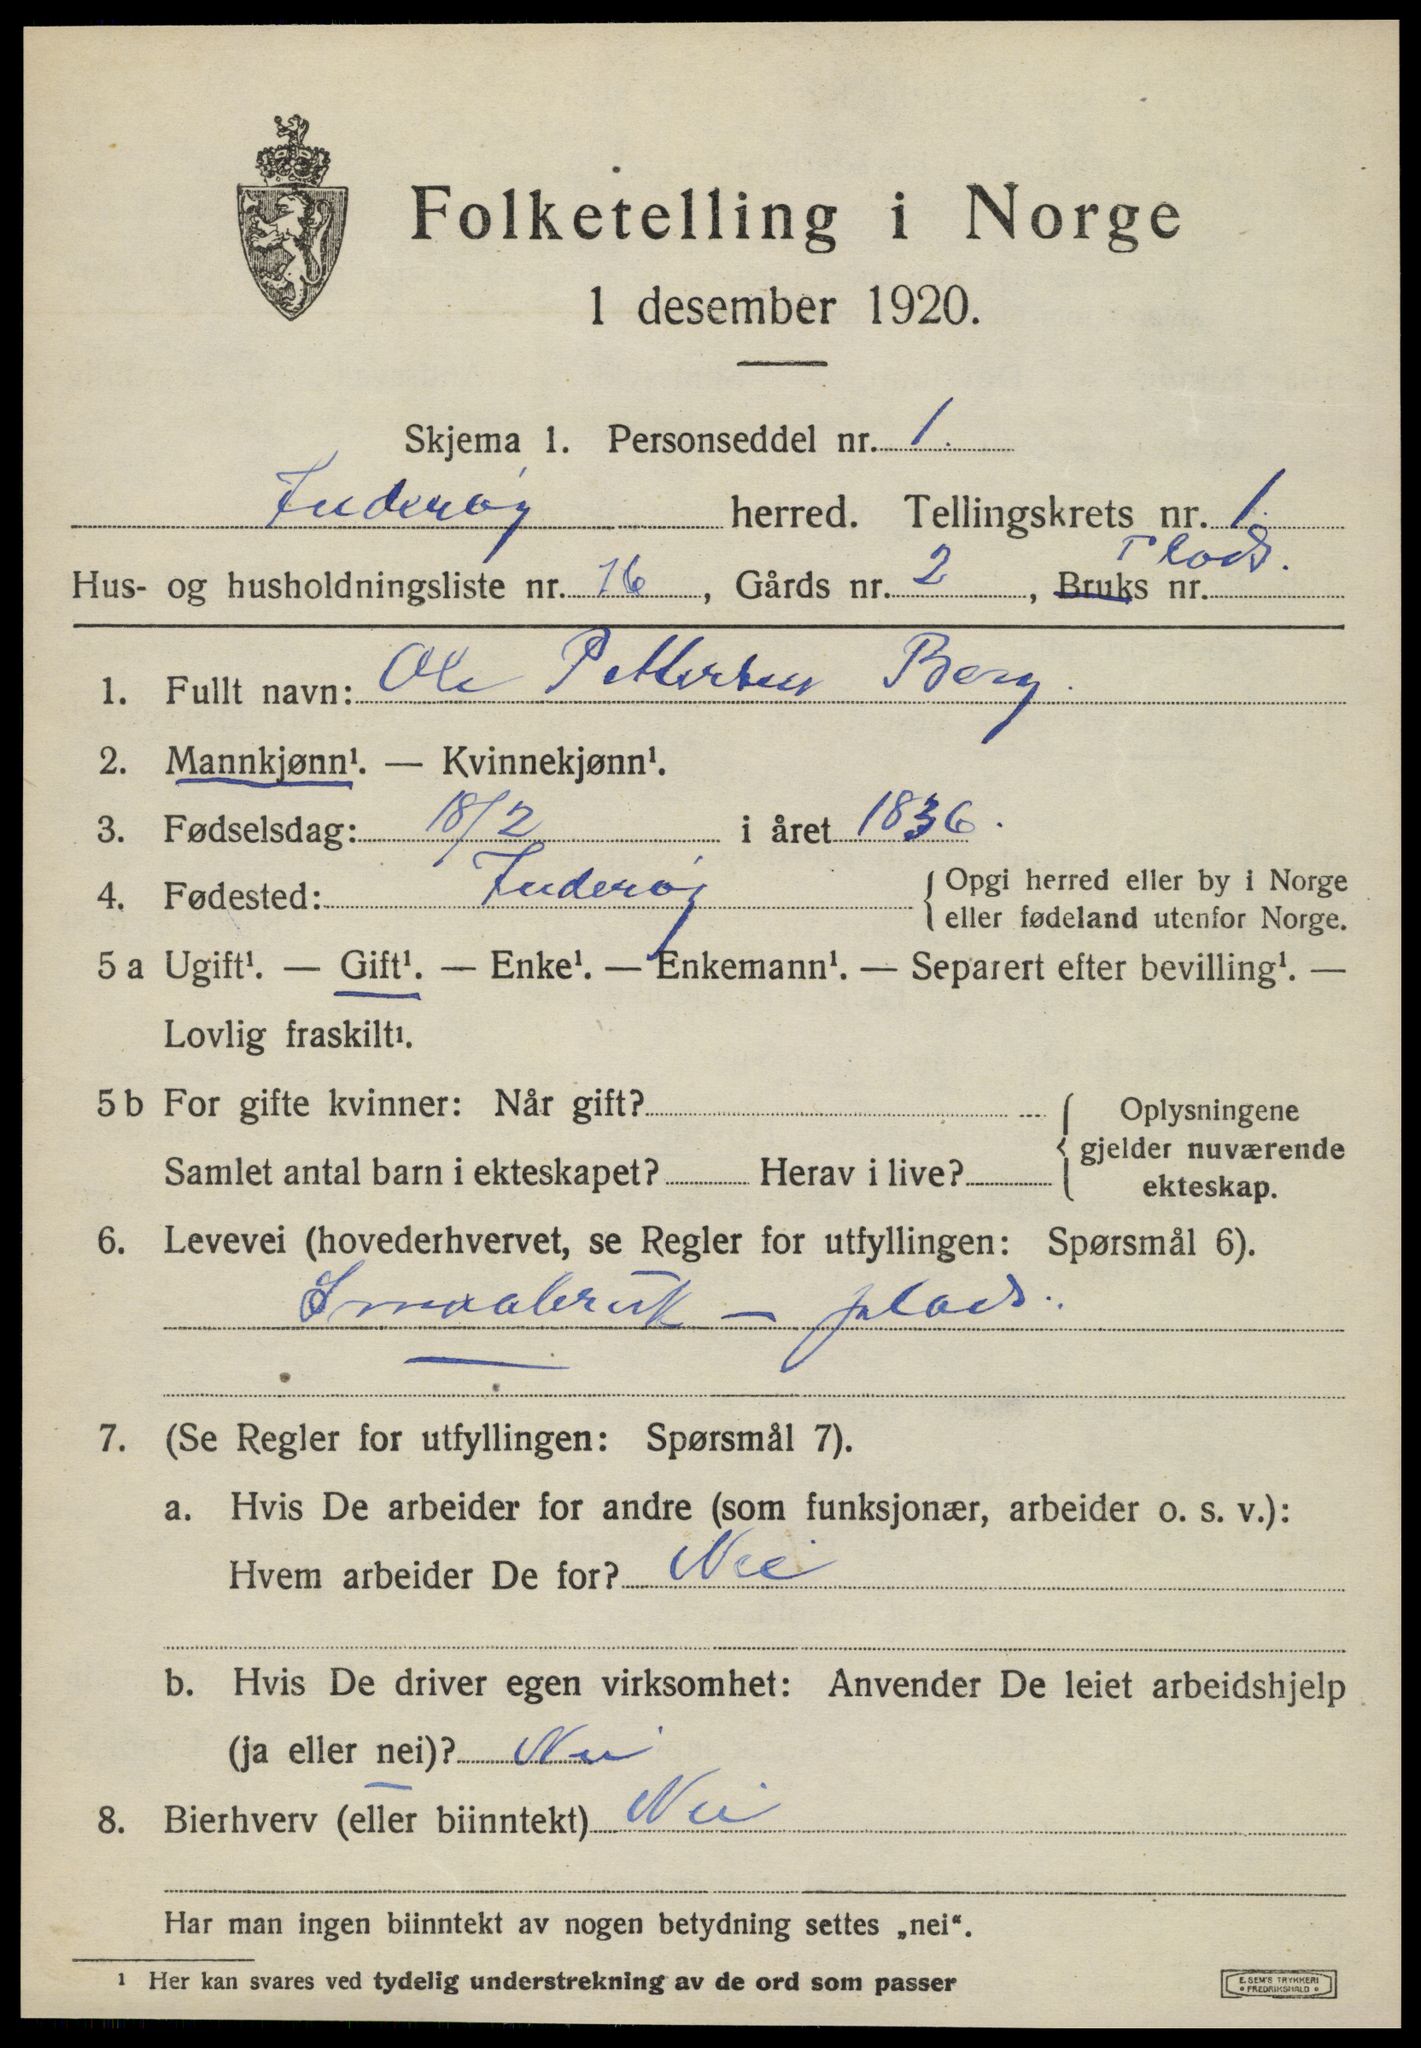 Folketelling i Norge
1 desember 1920.
Skjema 1. Personseddel nr. 1.
Inderøy herred. Tellingskrets nr. 1.
Plads.
Hus- og husholdningsliste nr. 16, Gårds nr. 2, Bruks nr.
1. Fullt navn: Ole Pettersen Berg.
2. Mannkjønn¹. — Kvinnekjønn¹.
3. Fødselsdag: 18/2 i året 1836.
4. Fødested: Inderøy { Opgi herred eller by i Norge
eller fødeland utenfor Norge.
5 a Ugift¹. — Gift¹. — Enke¹. — Enkemann¹. — Separert efter bevilling¹. —
Lovlig fraskilt¹.
5 b For gifte kvinner: Når gift?
Samlet antal barn i ekteskapet? Herav i live?
{ Oplysningene
gjelder nuværende
ekteskap.
6. Levevei (hovederhvervet, se Regler for utfyllingen: Spørsmål 6).
Smaabruk — plads.
7. (Se Regler for utfyllingen: Spørsmål 7).
a. Hvis De arbeider for andre (som funksjonær, arbeider o. s. v.):
Hvem arbeider De for? Nei
b. Hvis De driver egen virksomhet: Anvender De leiet arbeidshjelp
(ja eller nei)? Nei
8. Bierhverv (eller biinntekt) Nei
Har man ingen biinntekt av nogen betydning settes „nei“.
¹ Her kan svares ved tydelig understrekning av de ord som passer
E. SEM'S TRYKKERI
FREDRIKSHALD